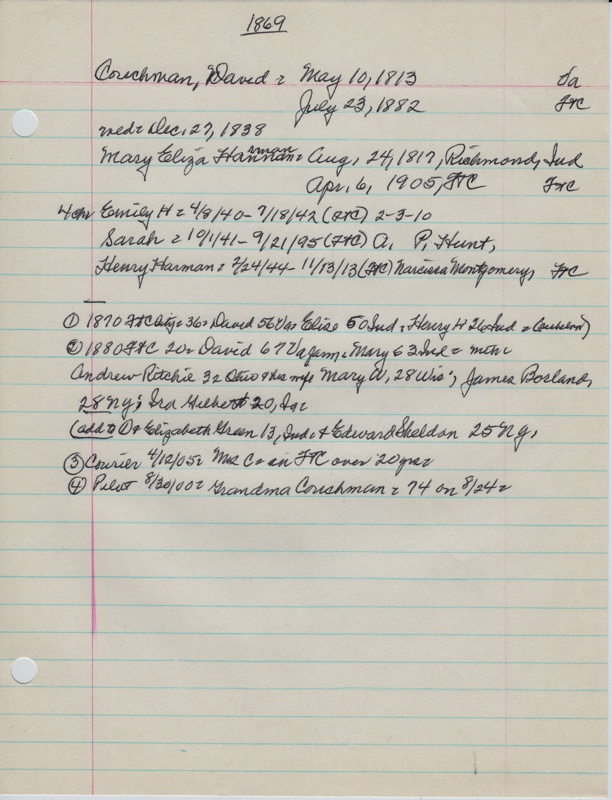 1869
Couchman, David = May 10, 1813 Va
July 23, 1882 FtC
med = Dec. 27, 1838
Mary Eliza Harman = Aug. 24, 1817, Richmond, Ind
Apr. 6, 1905, FtC FtC
4 ch Emily H = 4/8/40 - 7/18/42 (FtC) 2-3-10
Sarah = 10/1/41 - 9/21/95 (FtC) A. P. Hunt,
Henry Harman = 2/24/44 - 11/13/13 (FtC) Narcissa Montgomery, FtC
① 1870 FtC 36 = David 56 Va Elize 50 Ind = Henry H 26 Ind =
② 1880 FtC 20 = David 67 Va farm, Mary 63 Ind =
Andrew Ritchie 32 Ohio & his wife Mary W, 28 Wis; James Borland,
28 Ny; Ira Gilbert 20,
(add to ① & Elizabeth Green 13, Ind; & Edward Sheldon 25 Ny,
③ Courier 4/12/05 = Mrs C = in FtC over 20 yrs =
④ Pilot 8/30/00 = Grandma Couchman = 74 on 8/24 =